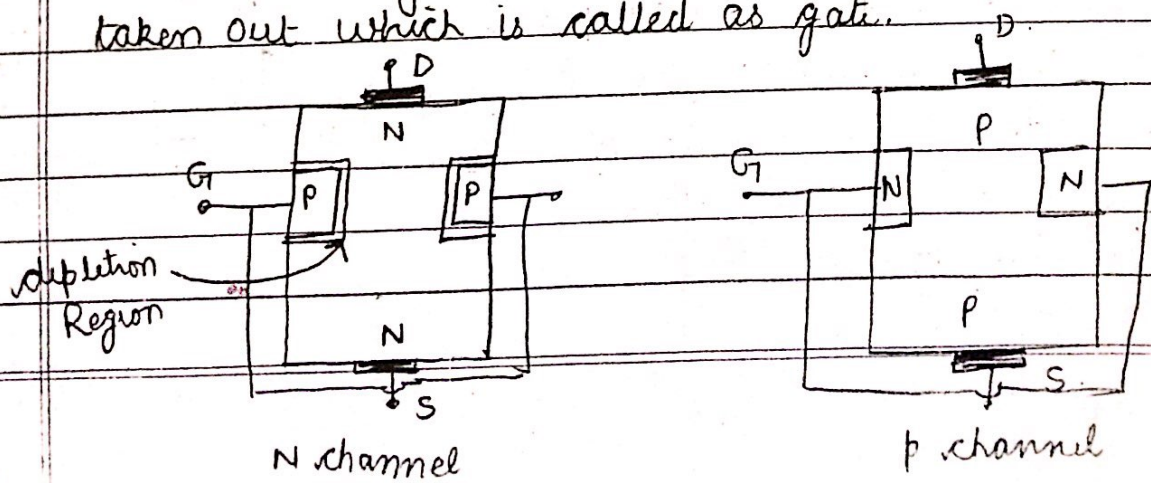 taken out which is called as gate.
D
N
G
P
P
depletion
Region
N
S
N channel
D
P
G
N
N
P
S
p channel